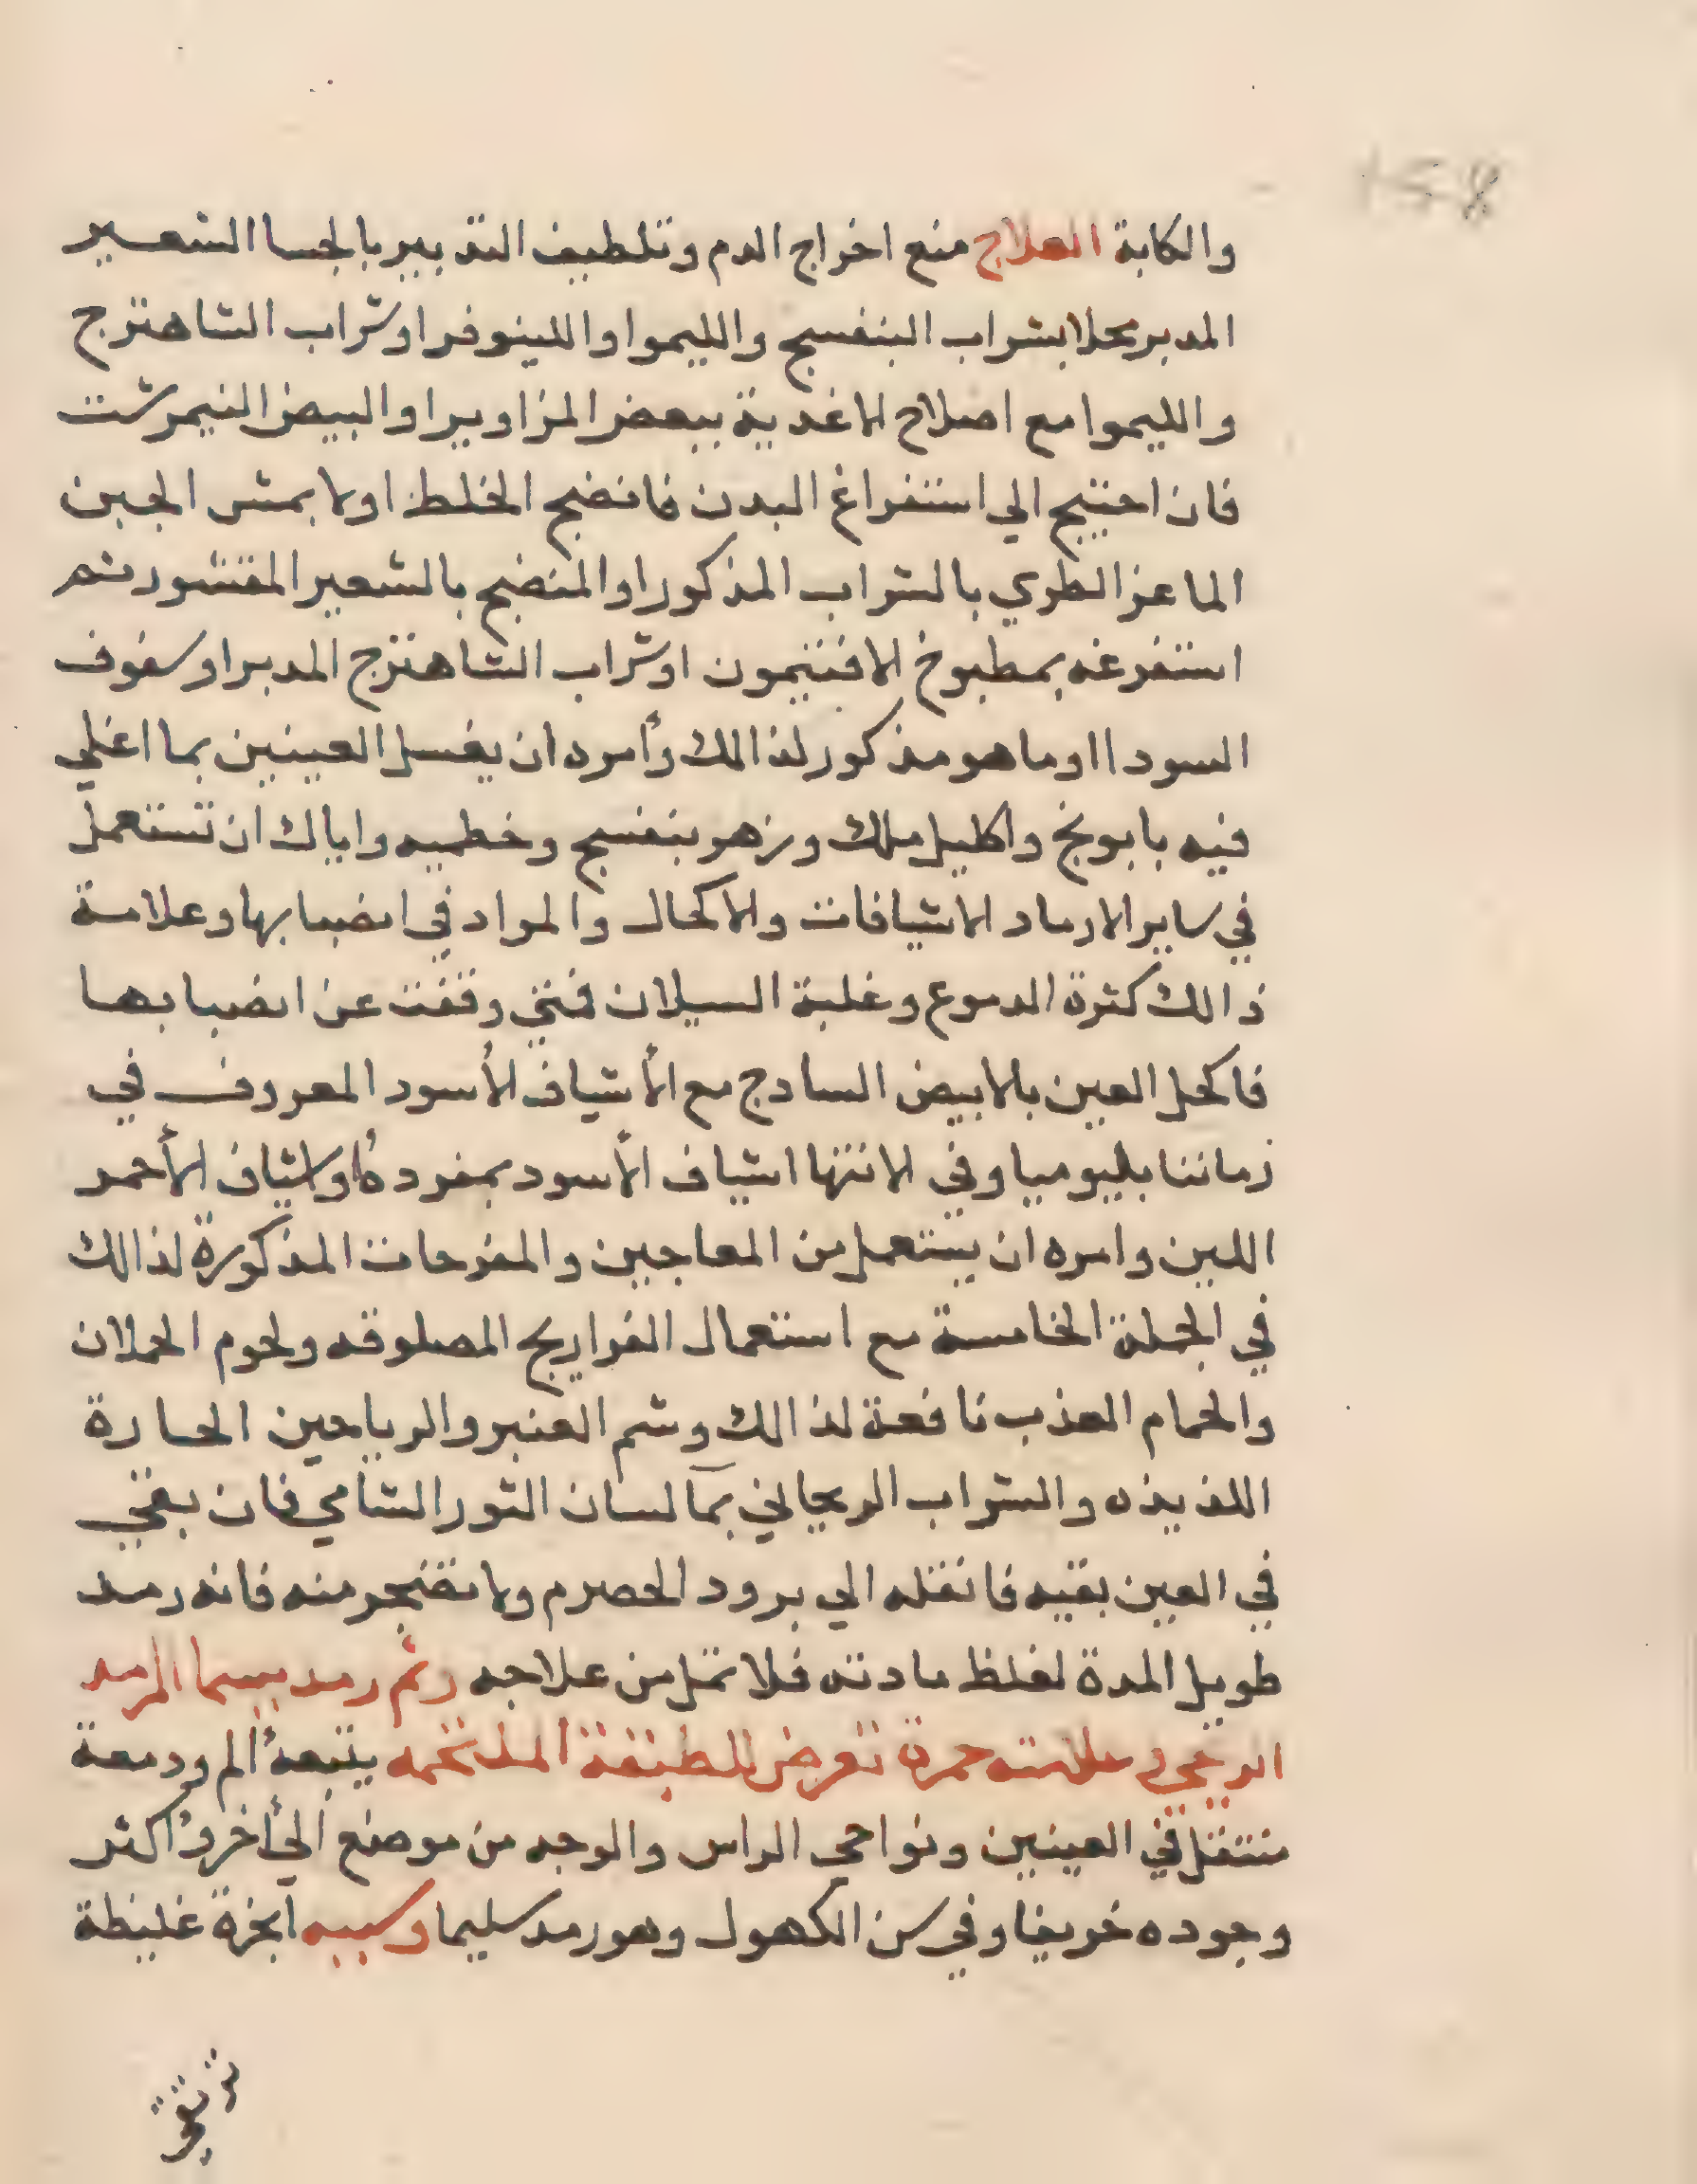 والكابة العلاج منع اخراج الدم وتلطيف التدبير بالحسا الشعير
المدبر محلا بشراب البنفسج والليموا واللينوفر او شراب الشاهترج
والليموا مع اصلاح الاغدية ببعض المزاوير او البيض النيمرشت
فان احتيج الي استفراغ البدن فانضج الخلط اولا بمش الجبن
الماعز الطري بالشراب المذكور او المنضج بالشعير المقشور ثم
استفرغه بمطبوخ الافتيمون او شراب الشاهترج المدبر او سفوف
السودا او ما هو مذكور لذالك وأمره ان يغسل العينين بما اغلي
فيه بابونج واكليل ملك وزهر بنفسج وخطميه واياك ان تستعمل
في ساير الارماد الاشيافات والاكحال والمواد في انصبابها وعلامة
ذالك كثرة الدموع وغلبة السيلان فمتي وقفت عن انصبابها
فاكحل العين بالابيض السادج مع الأشياف الأسود المعروف في
زماننا بليوميا وفي الانتها اشياف الأسود بمفرده او اشياف الأحمر
اللين وامره ان يستعمل من المعاجين والمفرحات المذكورة لذالك
في الجملة الخامسة مع استعمال الفراريج المصلوقه ولحوم الحملان
والحمام العذب نافعة لذالك وشم العنبر والرياحين الحارة
اللذيذه والشراب الريحاني بمآ لسان الثور الشامي فان بقي
في العين بقيه فانقله الي برود الحصرم ولا تضجر منه فانه رمد
طويل المدة لغلظ مادته فلا تمل من علاجه وثم رمد يسما الرمد
الريحي وعلامته حمرة تعرض للطبقة الملتحمه يتبعه ألم ودمعة
تنتقل في العينين ونواحي الراس والوجه من موضع الي أخر واكثر
وجوده خريفا وفي سن الكهول وهو رمد سليما وسببه ابخرة غليظة